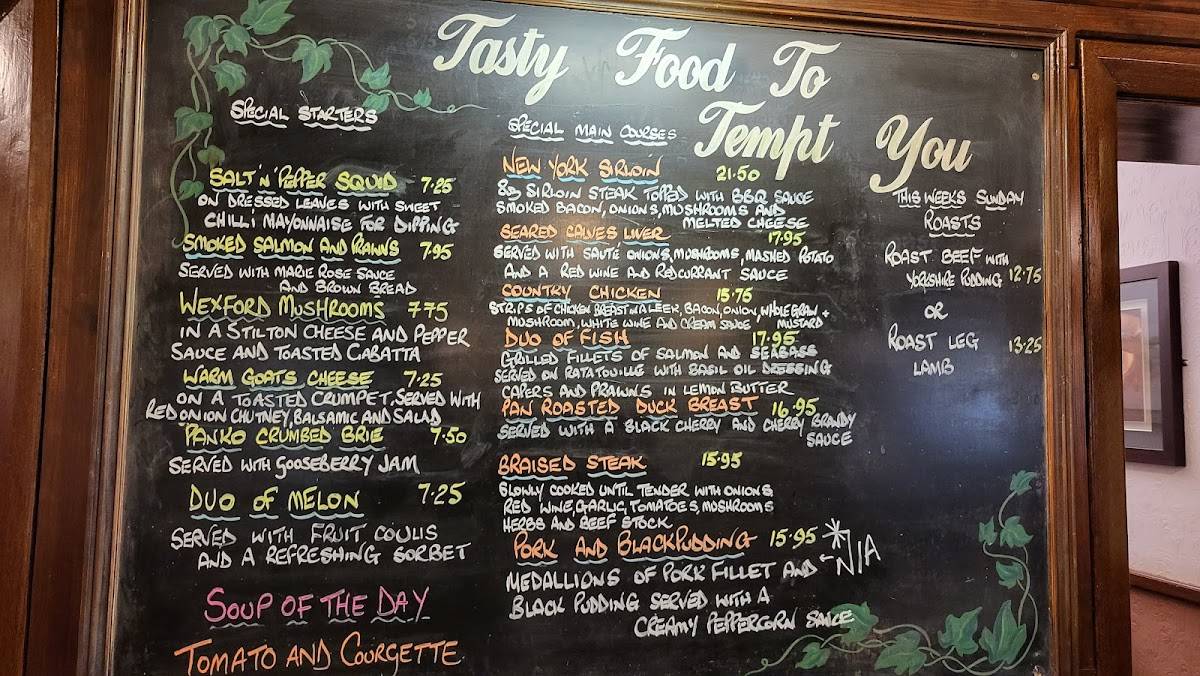 Tasty Food To
Tempt You
SPECIAL STARTERS
SALT 'N' PEPPER SQUID 7.25
ON DRESSED LEAVES WITH SWEET
CHILLI MAYONNAISE FOR DIPPING
SMOKED SALMON AND PRAWNS 7.95
SERVED WITH MARIE ROSE SAUCE
AND BROWN BREAD
WEXFORD MUSHROOMS 7.75
IN A STILTON CHEESE AND PEPPER
SAUCE AND TOASTED CABATTA
WARM GOATS CHEESE 7.25
ON A TOASTED CRUMPET, SERVED WITH
RED ONION CHUTNEY, BALSAMIC AND SALAD
PANKO CRUMBED BRIE 7.50
SERVED WITH GOOSEBERRY JAM
DUO OF MELON 7.25
SERVED WITH FRUIT COULIS
AND A REFRESHING SORBET
SOUP OF THE DAY
TOMATO AND COURGETTE
SPECIAL MAIN COURSES
NEW YORK SIRLOIN 21.50
8oz SIRLOIN STEAK TOPPED WITH BBQ SAUCE
SMOKED BACON, ONIONS, MUSHROOMS AND
MELTED CHEESE
SEARED CALVES LIVER 17.95
SERVED WITH SAUTÉ ONIONS, MUSHROOMS, MASHED POTATO
AND A RED WINE AND REDCURRANT SAUCE
COUNTRY CHICKEN 15.75
STRIPS OF CHICKEN BREAST IN A LEEK, BACON, ONION, WHOLEGRAIN +
MUSHROOM, WHITE WINE AND CREAM SAUCE MUSTARD
DUO OF FISH 17.95
GRILLED FILLETS OF SALMON AND SEABASS
SERVED ON RATATOUILLE WITH BASIL OIL DRESSING
CAPERS AND PRAWNS IN LEMON BUTTER
PAN ROASTED DUCK BREAST 16.95
SERVED WITH A BLACK CHERRY AND CHERRY BRANDY
SAUCE
BRAISED STEAK 15.95
SLOWLY COOKED UNTIL TENDER WITH ONIONS
RED WINE, GARLIC, TOMATOES, MUSHROOMS
HERBS AND BEEF STOCK
PORK AND BLACKPUDDING 15.95 * N/A
MEDALLIONS OF PORK FILLET AND
BLACK PUDDING SERVED WITH A
CREAMY PEPPERCORN SAUCE
THIS WEEK'S SUNDAY
ROASTS
ROAST BEEF WITH
YORKSHIRE PUDDING 12.75
OR
ROAST LEG 13.25
LAMB